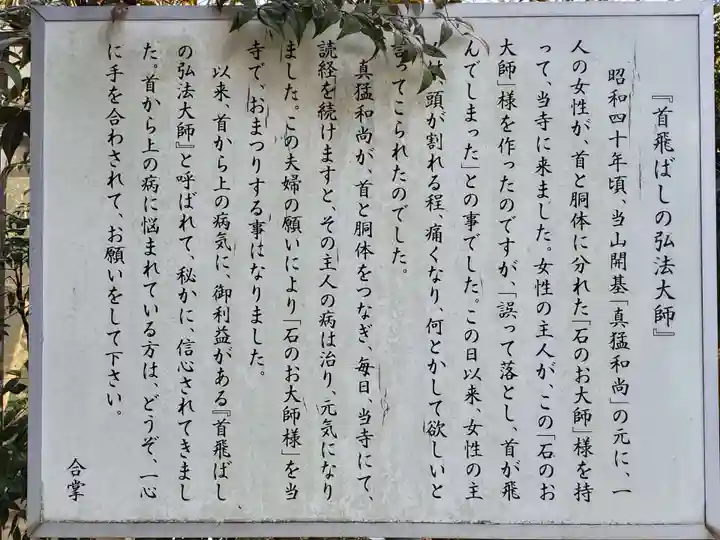 『首飛ばしの弘法大師』
昭和四十年頃、当山開基「真猛和尚」の元に、一
人の女性が、首と胴体に分れた「石のお大師」様を持
って、当寺に来ました。女性の主人が、この「石のお
大師」様を作ったのですが、「誤って落とし、首が飛
んでしまった」との事でした。この日以来、女性の主
は、頭が割れる程、痛くなり、何とかして欲しいと
言ってこられたのでした。
真猛和尚が、首と胴体をつなぎ、毎日、当寺にて、
読経を続けますと、その主人の病は治り、元気になり
ました。この夫婦の願いにより「石のお大師様」を当
寺で、おまつりする事はなりました。
以来、首から上の病気に、御利益がある『首飛ばし
の弘法大師』と呼ばれて、秘かに、信心されてきまし
た。首から上の病に悩まれている方は、どうぞ、一心
に手を合わされて、お願いをして下さい。
合掌